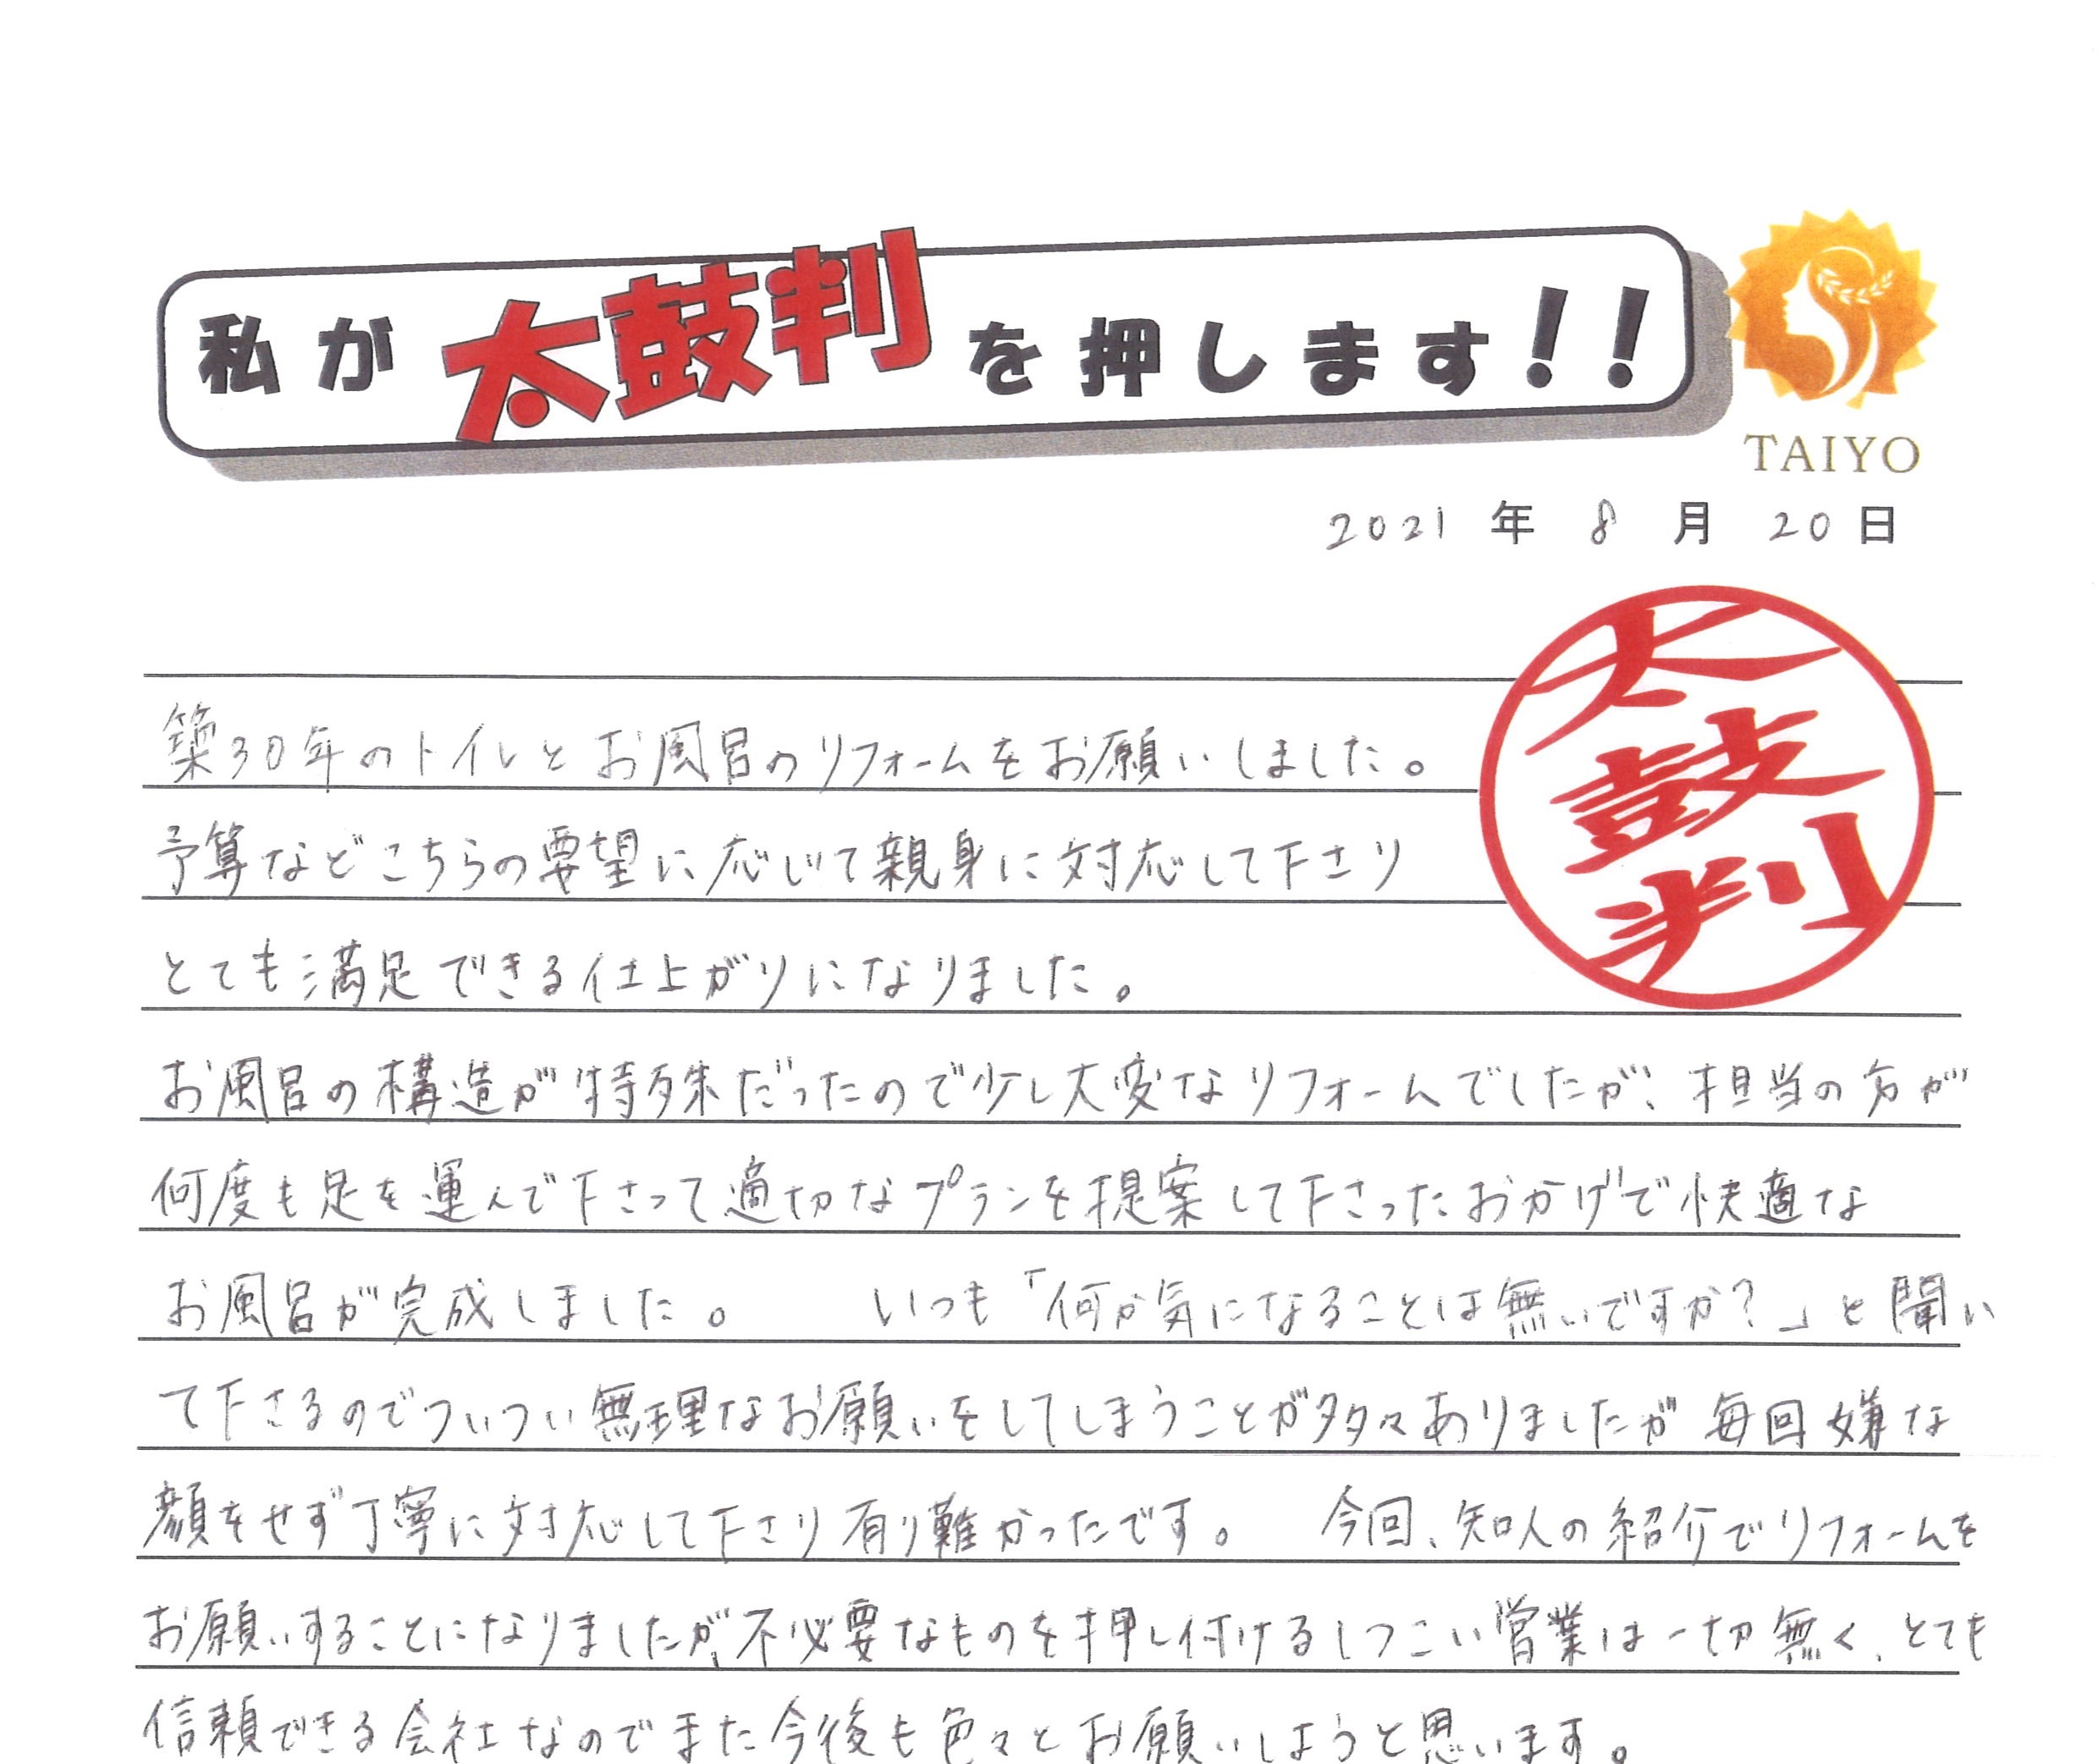 私が太鼓判を押します!!
TAIYO
2021年8月20日
太鼓判
築30年のトイレとお風呂のリフォームをお願いしました。
予算などこちらの要望に応じて親身に対応して下さり
とても満足できる仕上がりになりました。
お風呂の構造が特殊だったので少し大変なリフォームでしたが、担当の方が
何度も足を運んで下さって適切なプランを提案して下さったおかげで快適な
お風呂が完成しました。 いつも「何か気になることは無いですか?」と聞い
て下さるのでついつい無理なお願いをしてしまうことが多々ありましたが毎回嫌な
顔をせず丁寧に対応して下さり有り難かったです。 今回、知人の紹介でリフォームを
お願いすることになりましたが、不必要なものを押し付けるしつこい営業は一切無く、とても
信頼できる会社なのでまた今後も色々とお願いしようと思います。